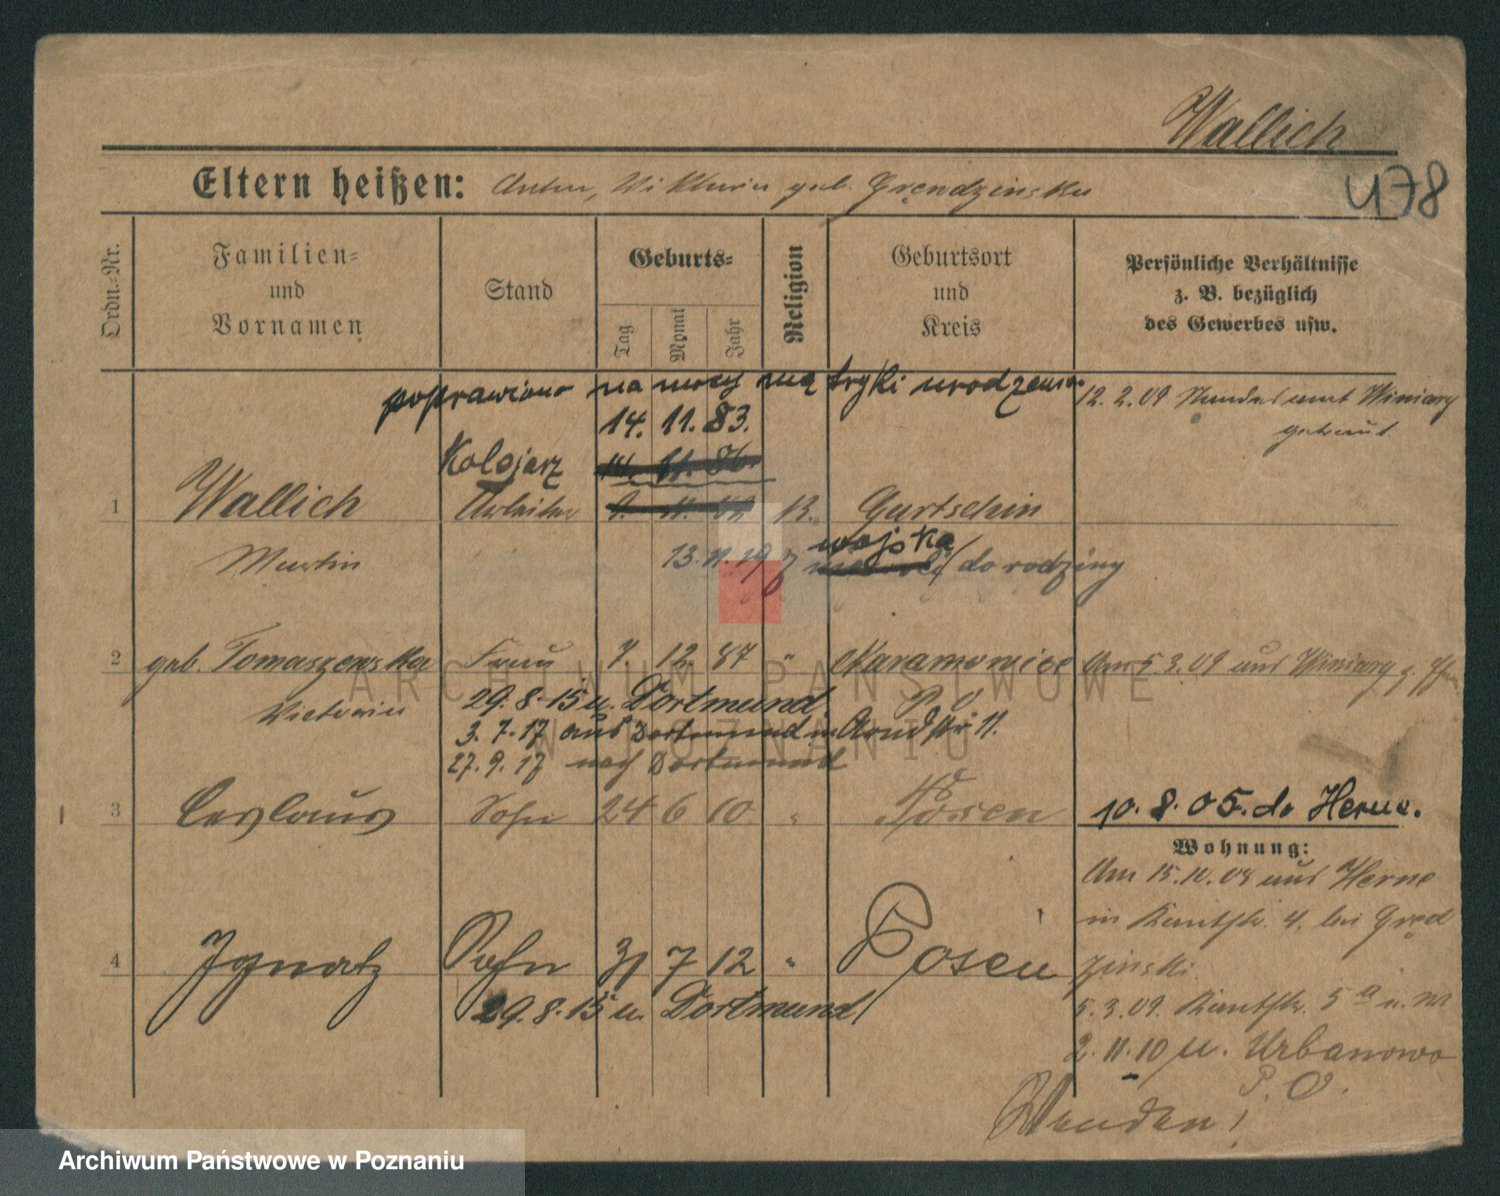 Wallich
478
Eltern heißen: Anton, Viktoria geb. Grendzinska
Ordn.-Nr.
Familien- und Vornamen
Stand
Geburts-
Tag
Monat
Jahr
Religion
Geburtsort und Kreis
Persönliche Verhältnisse z. B. bezüglich des Gewerbes usw.
poprawiono na mocy metryki urodzenia
14. 11. 83.
12. 2. 09 Standesamt Winiary
getraut.
Kolejarz
14. 11. 86.
1 Wallich Arbeiter K. Gurtschin
wojska
Martin 13. 11. 19 z do rodziny
2 geb. Tomaszewska Frau 7. 12. 87 " Karamowice Am 5.3.09 aus Winiary
Victoria 29. 8. 15 u. Dortmund P. O.
3. 7. 17 aus Dortmund in Arndtstr 11.
27. 9. 17 nach Dortmund
3 Ceslaus Sohn 24 6 10 " Posen 10. 8. 05. do Herne.
Wohnung:
Am 15. 10. 08 aus Herne
in Kantstr. 4. bei Gręd
zinski.
4 Ignatz Sohn 31 7 12 " Posen
29. 8. 15 u. Dortmund
5. 3. 09. Kantstr. 5a
2. 11. 10 u. Urbanowo
P. O.
Wenden!
ARCHIWUM PAŃSTWOWE
W POZNANIU
Archiwum Państwowe w Poznaniu